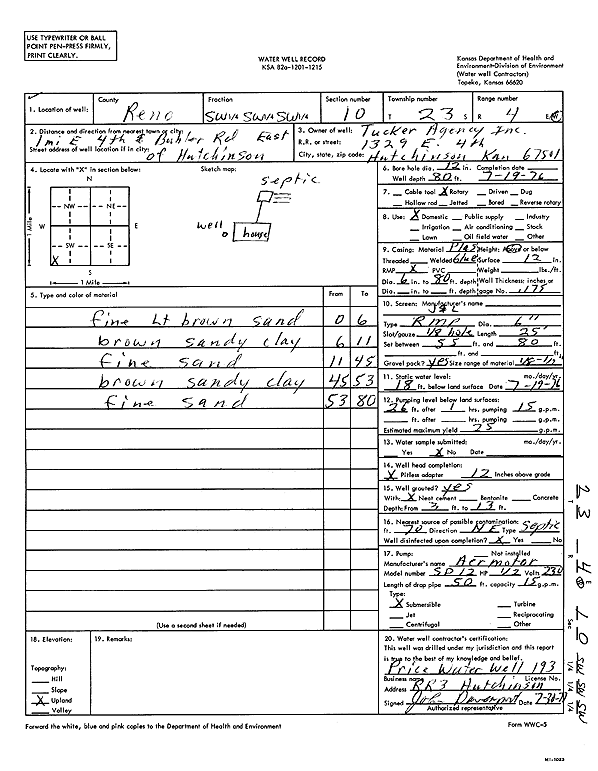 USE TYPEWRITER OR BALL
POINT PEN-PRESS FIRMLY,
PRINT CLEARLY.
WATER WELL RECORD
KSA 82a-1201-1215
Kansas Department of Health and
Environment-Division of Environment
(Water well Contractors)
Topeka, Kansas 66620
1. Location of well: County Reno Fraction SW¼ SW¼ SW¼ Section number 10 Township number T 23 S Range number R 4 E/W
2. Distance and direction from nearest town or city: 1mi E 4th & Buhler Rd East
Street address of well location if in city: of Hutchinson
3. Owner of well: Tucker Agency Inc.
R.R. or street: 1329 E. 4th
City, state, zip code: Hutchinson Kan 67501
4. Locate with "X" in section below:
Sketch map:
N
NW NE
W E
SW SE
X
S
1 Mile
1 Mile
septic
well
house
5. Type and color of material From To
fine Lt brown sand 0 6
brown sandy clay 6 11
fine sand 11 45
brown sandy clay 45 53
fine sand 53 80
(Use a second sheet if needed)
6. Bore hole dia. 12 in. Completion date
Well depth 80 ft. 7-19-76
7. Cable tool X Rotary Driven Dug
Hollow rod Jetted Bored Reverse rotary
8. Use: X Domestic Public supply Industry
Irrigation Air conditioning Stock
Lawn Oil field water Other
9. Casing: Material Plas Height: Above or below
Threaded Welded Glue Surface 12 in.
RMP X PVC Weight lbs./ft.
Dia. 6 in. to 80 ft. depth Wall Thickness: inches or
Dia. in. to ft. depth gage No. .175
10. Screen: Manufacturer's name
Type RMP Dia. 6"
Slot/gauze 1/8 hole Length 25'
Set between 55 ft. and 80 ft.
ft. and ft.
Gravel pack? yes Size range of material 1/8-1/2
11. Static water level: mo./day/yr.
18 ft. below land surface Date 7-19-76
12. Pumping level below land surfaces:
26 ft. after 1 hrs. pumping 15 g.p.m.
ft. after hrs. pumping g.p.m.
Estimated maximum yield 25 g.p.m.
13. Water sample submitted: mo./day/yr.
Yes X No Date
14. Well head completion:
X Pitless adapter 12 Inches above grade
15. Well grouted? yes
With: X Neat cement Bentonite Concrete
Depth: From 3 ft. to 13 ft.
16. Nearest source of possible contamination:
ft. 70 Direction NE Type Septic
Well disinfected upon completion? X Yes No
17. Pump: Not installed
Manufacturer's name Aermotor
Model number SD12 HP 1/2 Volts 230
Length of drop pipe 50 ft. capacity 15 g.p.m.
Type:
X Submersible Turbine
Jet Reciprocating
Centrifugal Other
18. Elevation:
Topography:
Hill
Slope
X Upland
Valley
19. Remarks:
20. Water well contractor's certification:
This well was drilled under my jurisdiction and this report
is true to the best of my knowledge and belief.
Price Water Well 193
Business name License No.
Address RR3 Hutchinson
Signed John Davenport Date 7-30-76
Authorized representative
Forward the white, blue and pink copies to the Department of Health and Environment
Form WWC-5
T 23 R 4 E Sec 10 SW SW SW
1/4 1/4 1/4